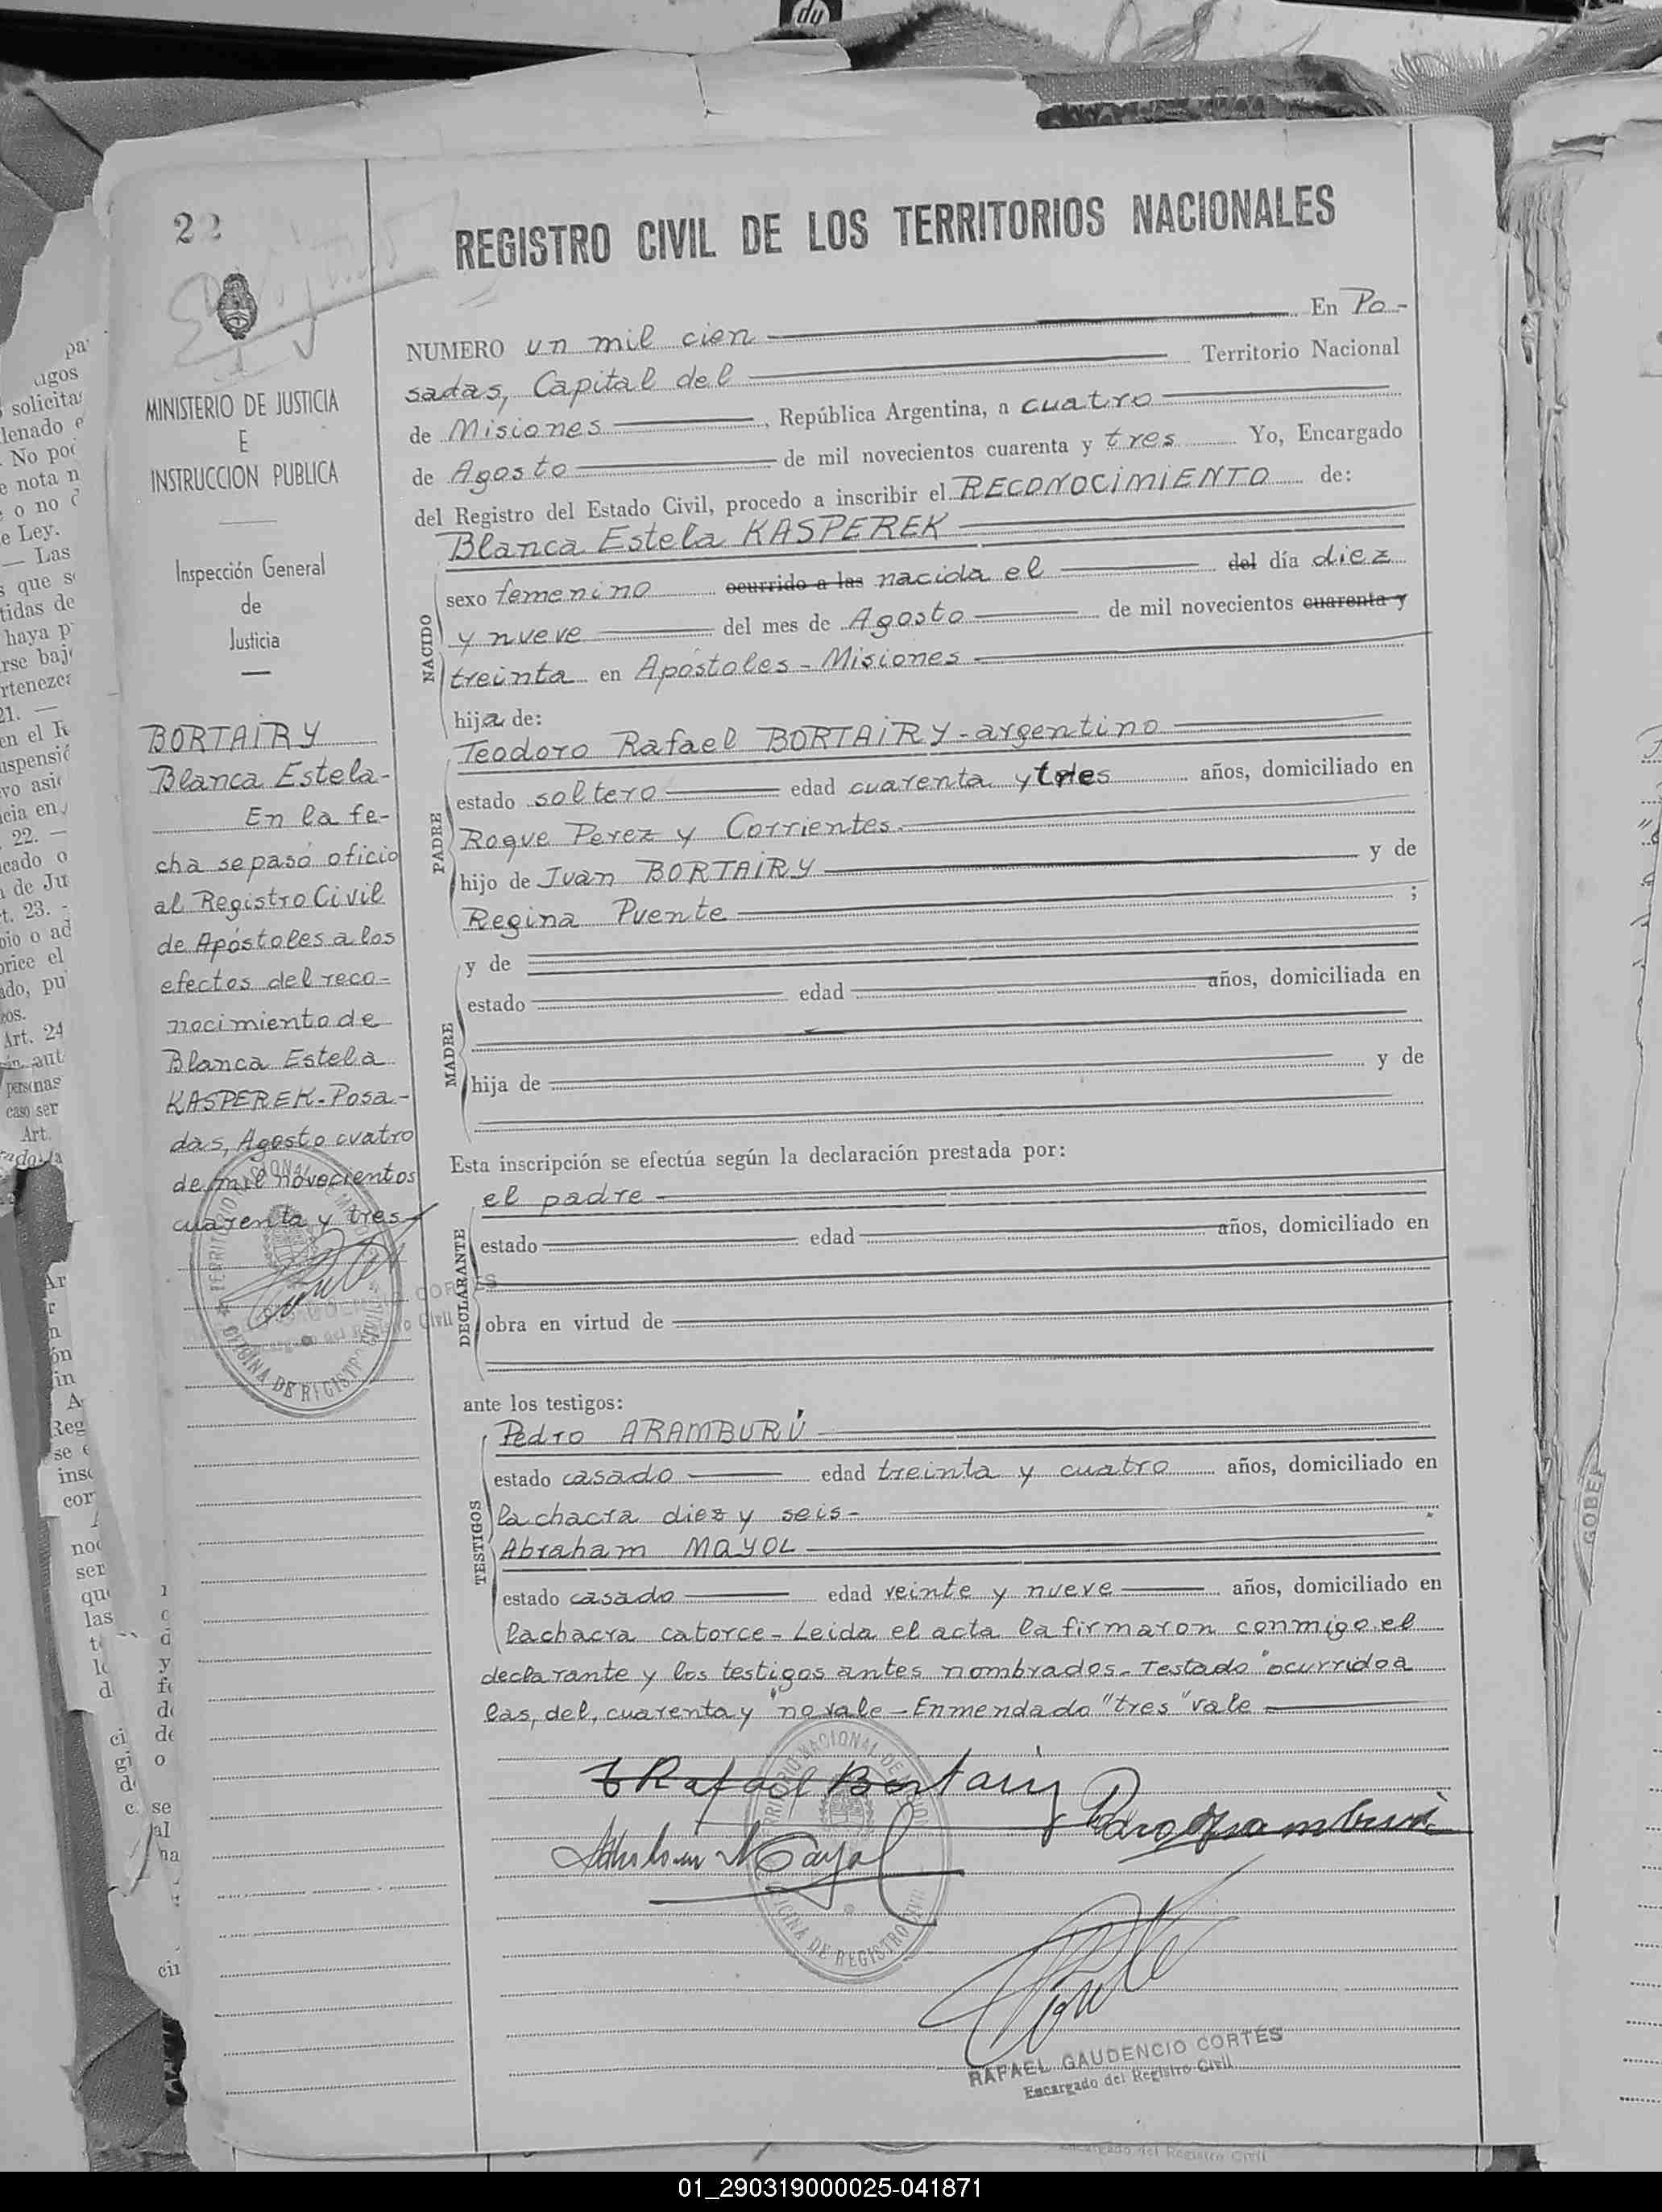 22
REGISTRO CIVIL DE LOS TERRITORIOS NACIONALES
MINISTERIO DE JUSTICIA
E
INSTRUCCION PUBLICA
Inspección General
de
Justicia
BORTAIRY
Blanca Estela-
En la fe-
cha se pasó oficio
al Registro Civil
de Apóstoles a los
efectos del reco-
nocimiento de
Blanca Estela
KASPEREK-Posa-
das, Agosto cuatro
de mil novecientos
cuarenta y tres
NUMERO un mil cien En Po-
sadas, Capital del Territorio Nacional
de Misiones, República Argentina, a cuatro
de Agosto de mil novecientos cuarenta y tres Yo, Encargado
del Registro del Estado Civil, procedo a inscribir el RECONOCIMIENTO de:
NACIDO
Blanca Estela KASPEREK
sexo femenino ocurrido a las nacida el del día diez
y nueve del mes de Agosto de mil novecientos cuarenta y
treinta en Apóstoles - Misiones
hija de:
PADRE
Teodoro Rafael BORTAIRY - argentino
estado soltero edad cuarenta y tres años, domiciliado en
Roque Perez y Corrientes.
hijo de Juan BORTAIRY y de
Regina Puente ;
MADRE
y de
estado edad años, domiciliada en
hija de y de
Esta inscripción se efectúa según la declaración prestada por:
DECLARANTE
el padre
estado edad años, domiciliado en
obra en virtud de
ante los testigos:
TESTIGOS
Pedro ARAMBURÚ
estado casado edad treinta y cuatro años, domiciliado en
la chacra diez y seis-
Abraham MAYOL
estado casado edad veinte y nueve años, domiciliado en
la chacra catorce - Leida el acta la firmaron conmigo el
declarante y los testigos antes nombrados - Testado "ocurrido a
las, del, cuarenta y" no vale - Enmendado "tres" vale
T Rafael Bortairy
Pedro Aramburú
Abraham Mayol
TERRITORIO NACIONAL DE MISIONES
OFICINA DE REGISTRO CIVIL
RAFAEL GAUDENCIO CORTÉS
Encargado del Registro Civil
01_290319000025-041871